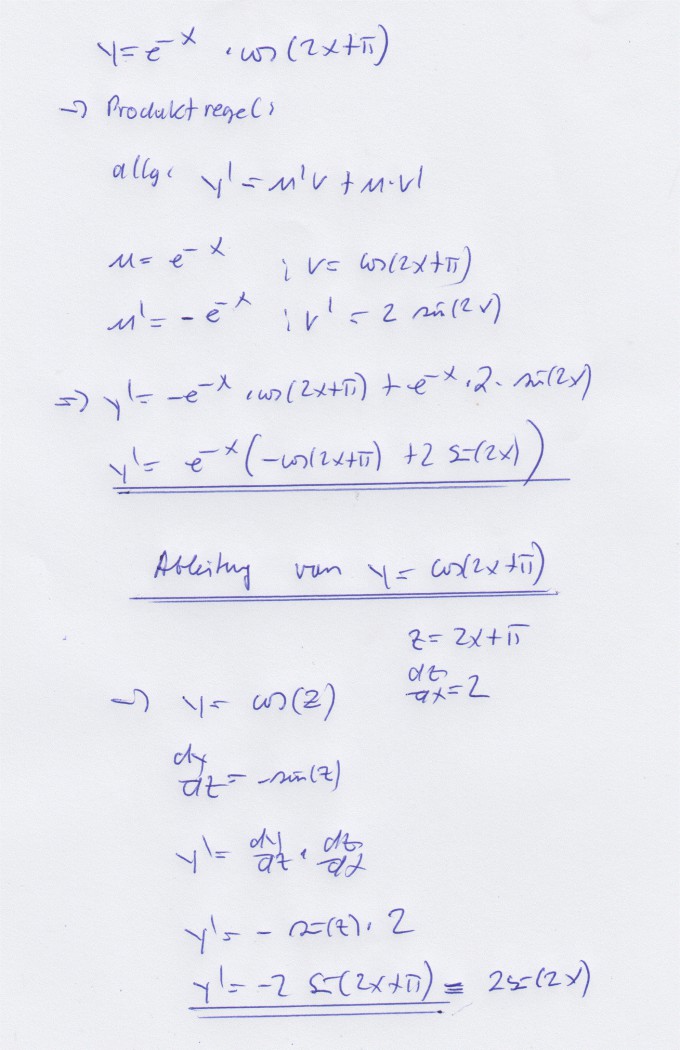 y = e^-x · cos(2x+π)
→ Produktregel:
allg: y' = u'v + u·v'
u = e^-x ; v = cos(2x+π)
u' = -e^-x ; v' = 2 sin(2x)
⇒ y' = -e^-x · cos(2x+π) + e^-x · 2 · sin(2x)
y' = e^-x (-cos(2x+π) + 2 sin(2x))
Ableitung von y = cos(2x+π)
z = 2x+π
dz/dx = 2
→ y = cos(z)
dy/dz = -sin(z)
y' = dy/dz · dz/dx
y' = - sin(z) · 2
y' = -2 sin(2x+π) = 2 sin(2x)